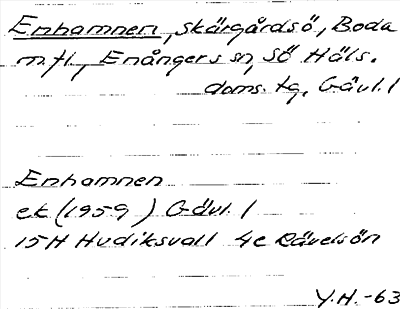 Enhamnen, skärgårdsö, Boda
m fl, Enångers sn, Sö Häls.
doms. tg, Gävl. l
Enhamnen
ek (1959) Gävl. l
15H Hudiksvall 4c Rävelsön
Y.H.-63